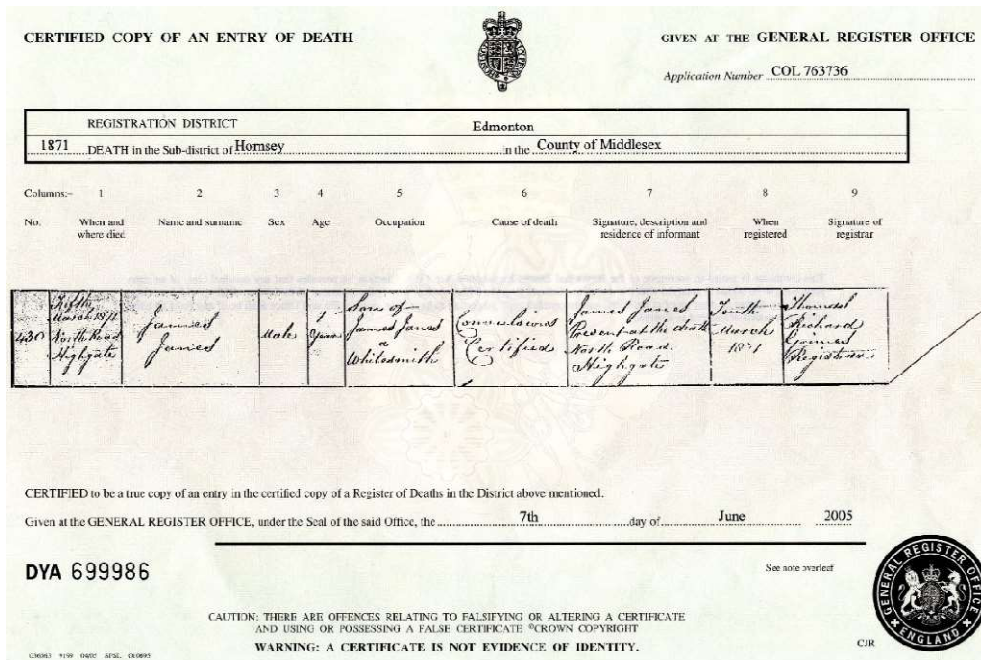 CERTIFIED COPY OF AN ENTRY OF DEATH
GIVEN AT THE GENERAL REGISTER OFFICE
Application Number COL 763736
REGISTRATION DISTRICT Edmonton
1871 DEATH in the Sub-district of Hornsey in the County of Middlesex
Columns:- 1 2 3 4 5 6 7 8 9
No. When and where died Name and surname Sex Age Occupation Cause of death Signature, description and residence of informant When registered Signature of registrar
430
Fifth
March 1871
North Road
Highgate
James
James
Male
Years
Son of
James James
a
Whitesmith
Convulsions
Certified
James James
Present at the death
North Road
Highgate
March
1871
Thomas
Richard
Registrar
CERTIFIED to be a true copy of an entry in the certified copy of a Register of Deaths in the District above mentioned.
Given at the GENERAL REGISTER OFFICE, under the Seal of the said Office, the 7th day of June 2005
DYA 699986
See note overleaf
GENERAL REGISTER OFFICE
ENGLAND
CAUTION: THERE ARE OFFENCES RELATING TO FALSIFYING OR ALTERING A CERTIFICATE
AND USING OR POSSESSING A FALSE CERTIFICATE ©CROWN COPYRIGHT
WARNING: A CERTIFICATE IS NOT EVIDENCE OF IDENTITY.
CJR